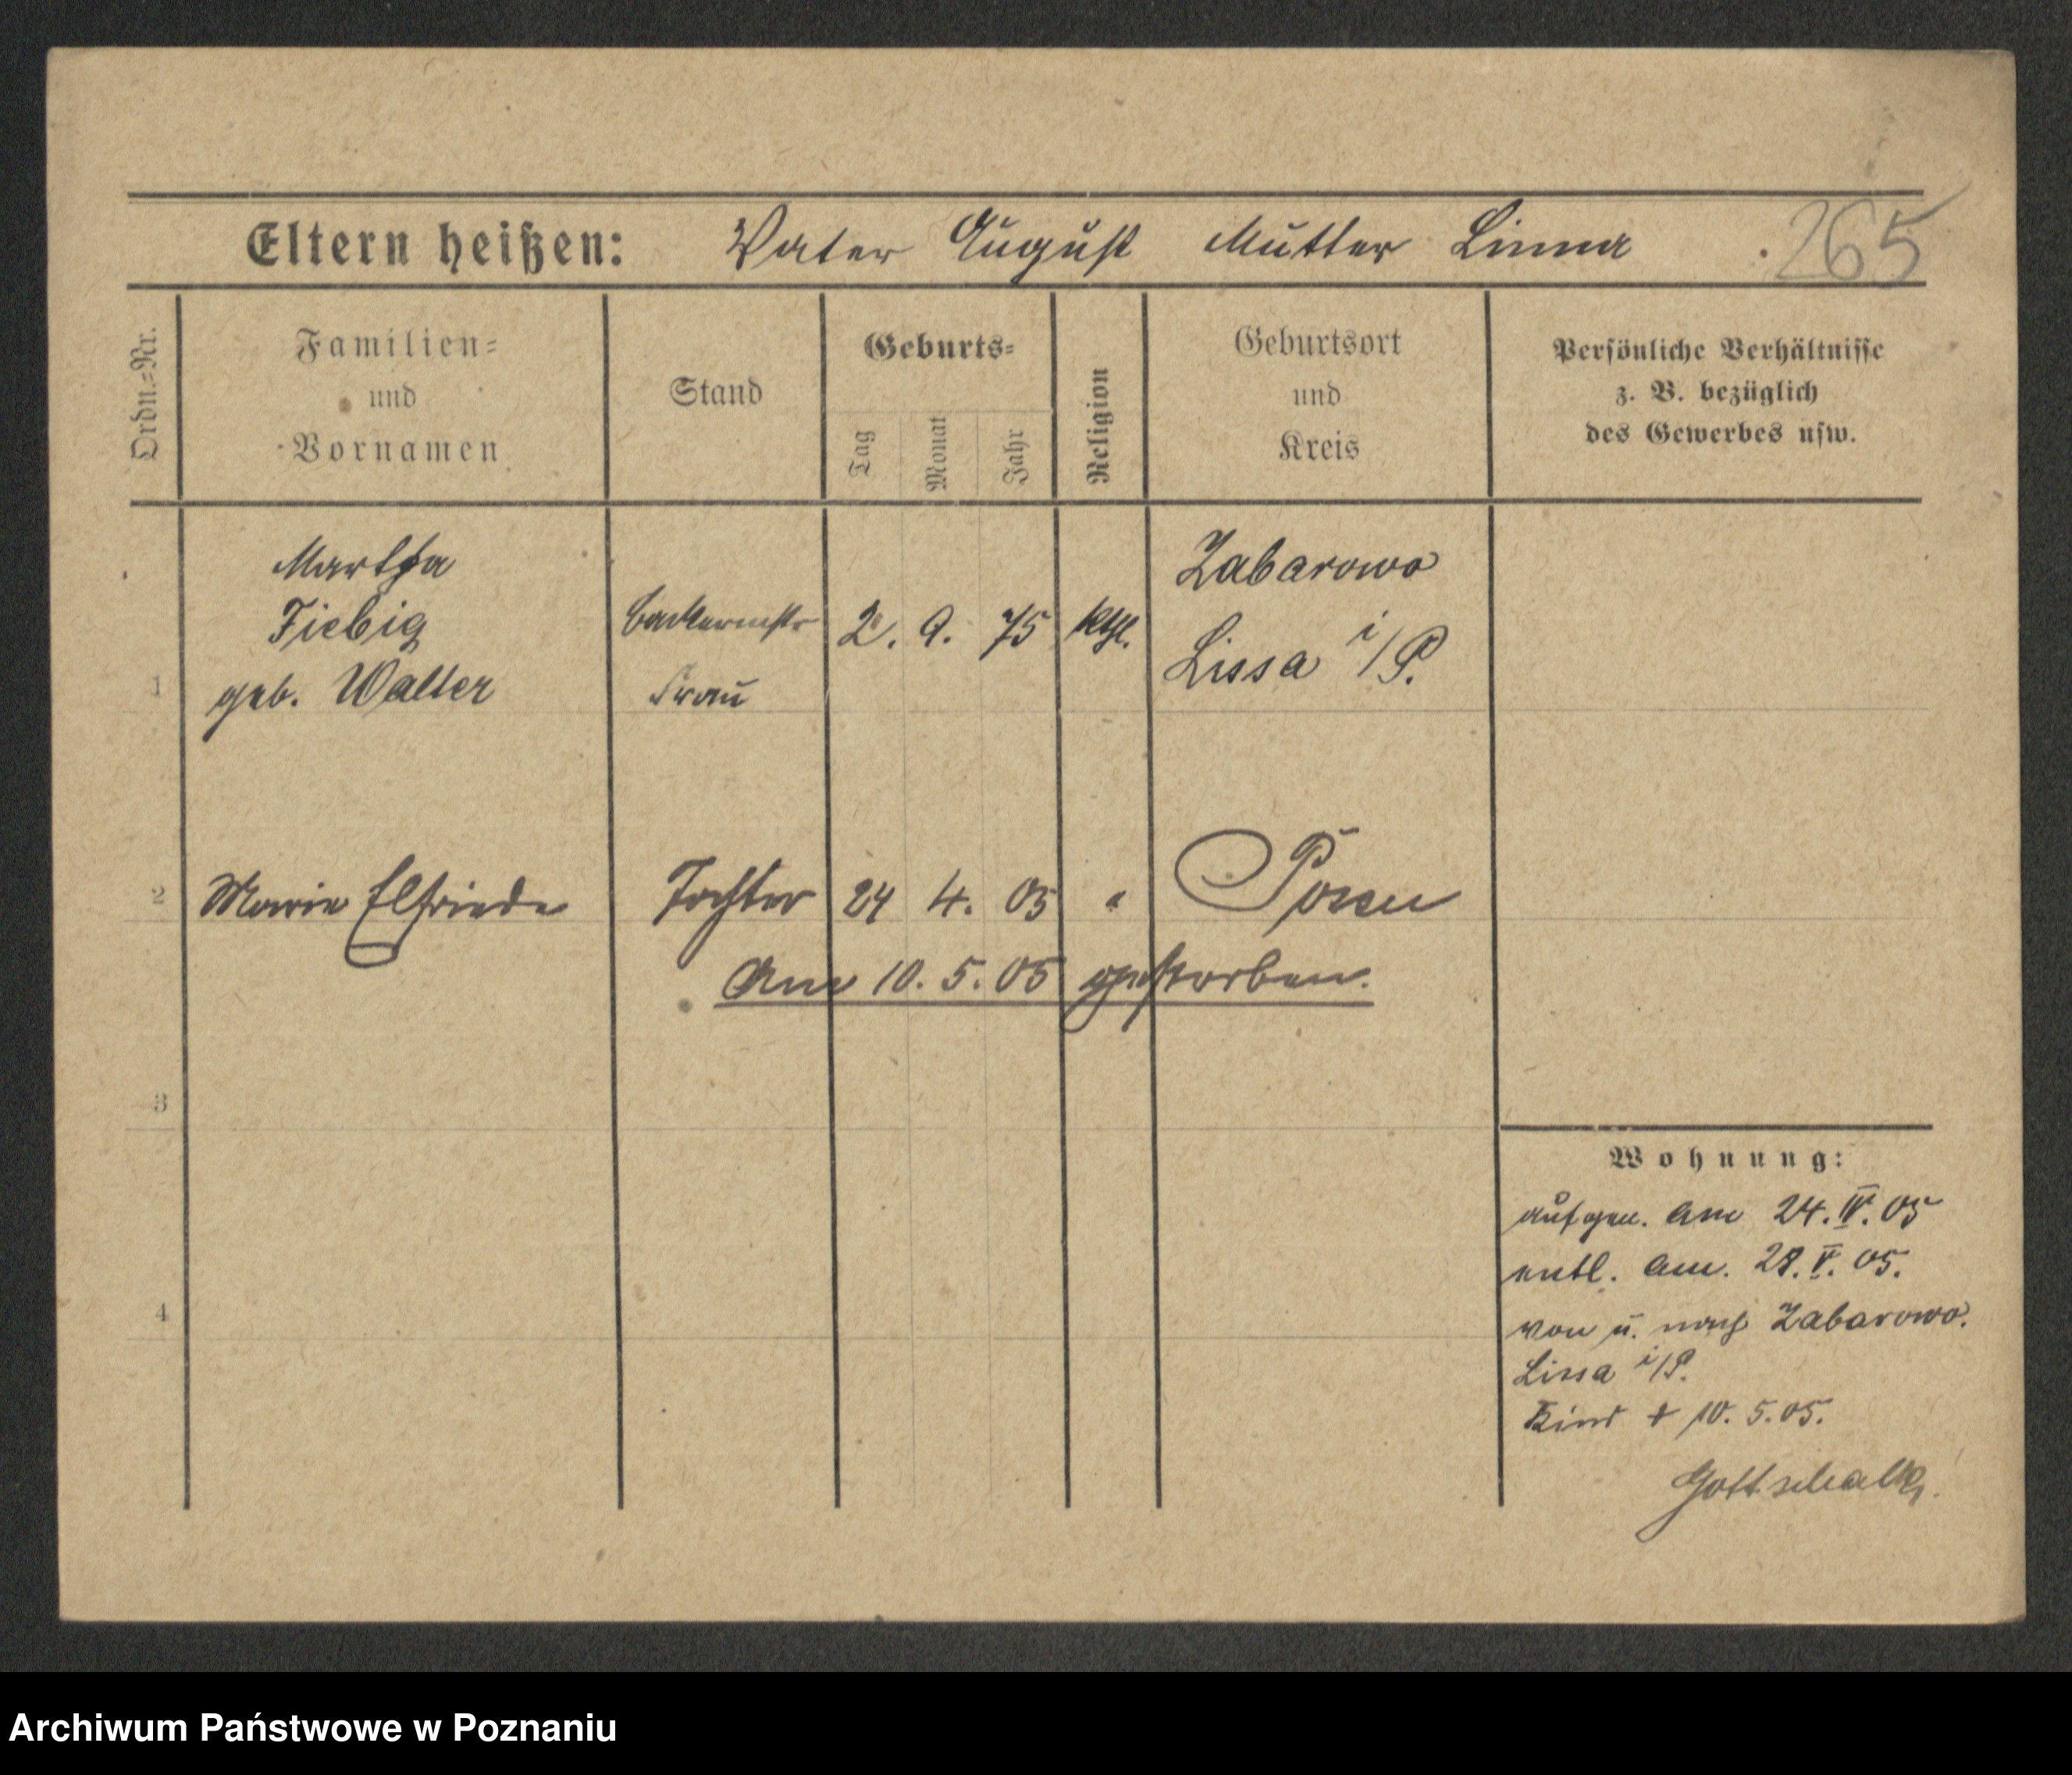 265
Eltern heißen: Vater August Mutter Linna
Ordn.=Nr.
Familien=
und
Vornamen
Stand
Geburts=
Tag
Monat
Jahr
Religion
Geburtsort
und
Kreis
Persönliche Verhältnisse
z. B. bezüglich
des Gewerbes usw.
1
Martha
Fiebig
geb. Walter
Frau
2. 9. 75
kthl.
Zabarowo
Lissa i/P.
2
Marie Elfriede
Tochter
24 4. 05
"
Posen
Am 10. 5. 05 gestorben.
3
4
Wohnung:
aufgen. am 24. IV. 05
entl. am. 28. V. 05.
von u. nach Zabarowo.
Lissa i/P.
Kind + 10. 5. 05.
Gottschalk.
Archiwum Państwowe w Poznaniu